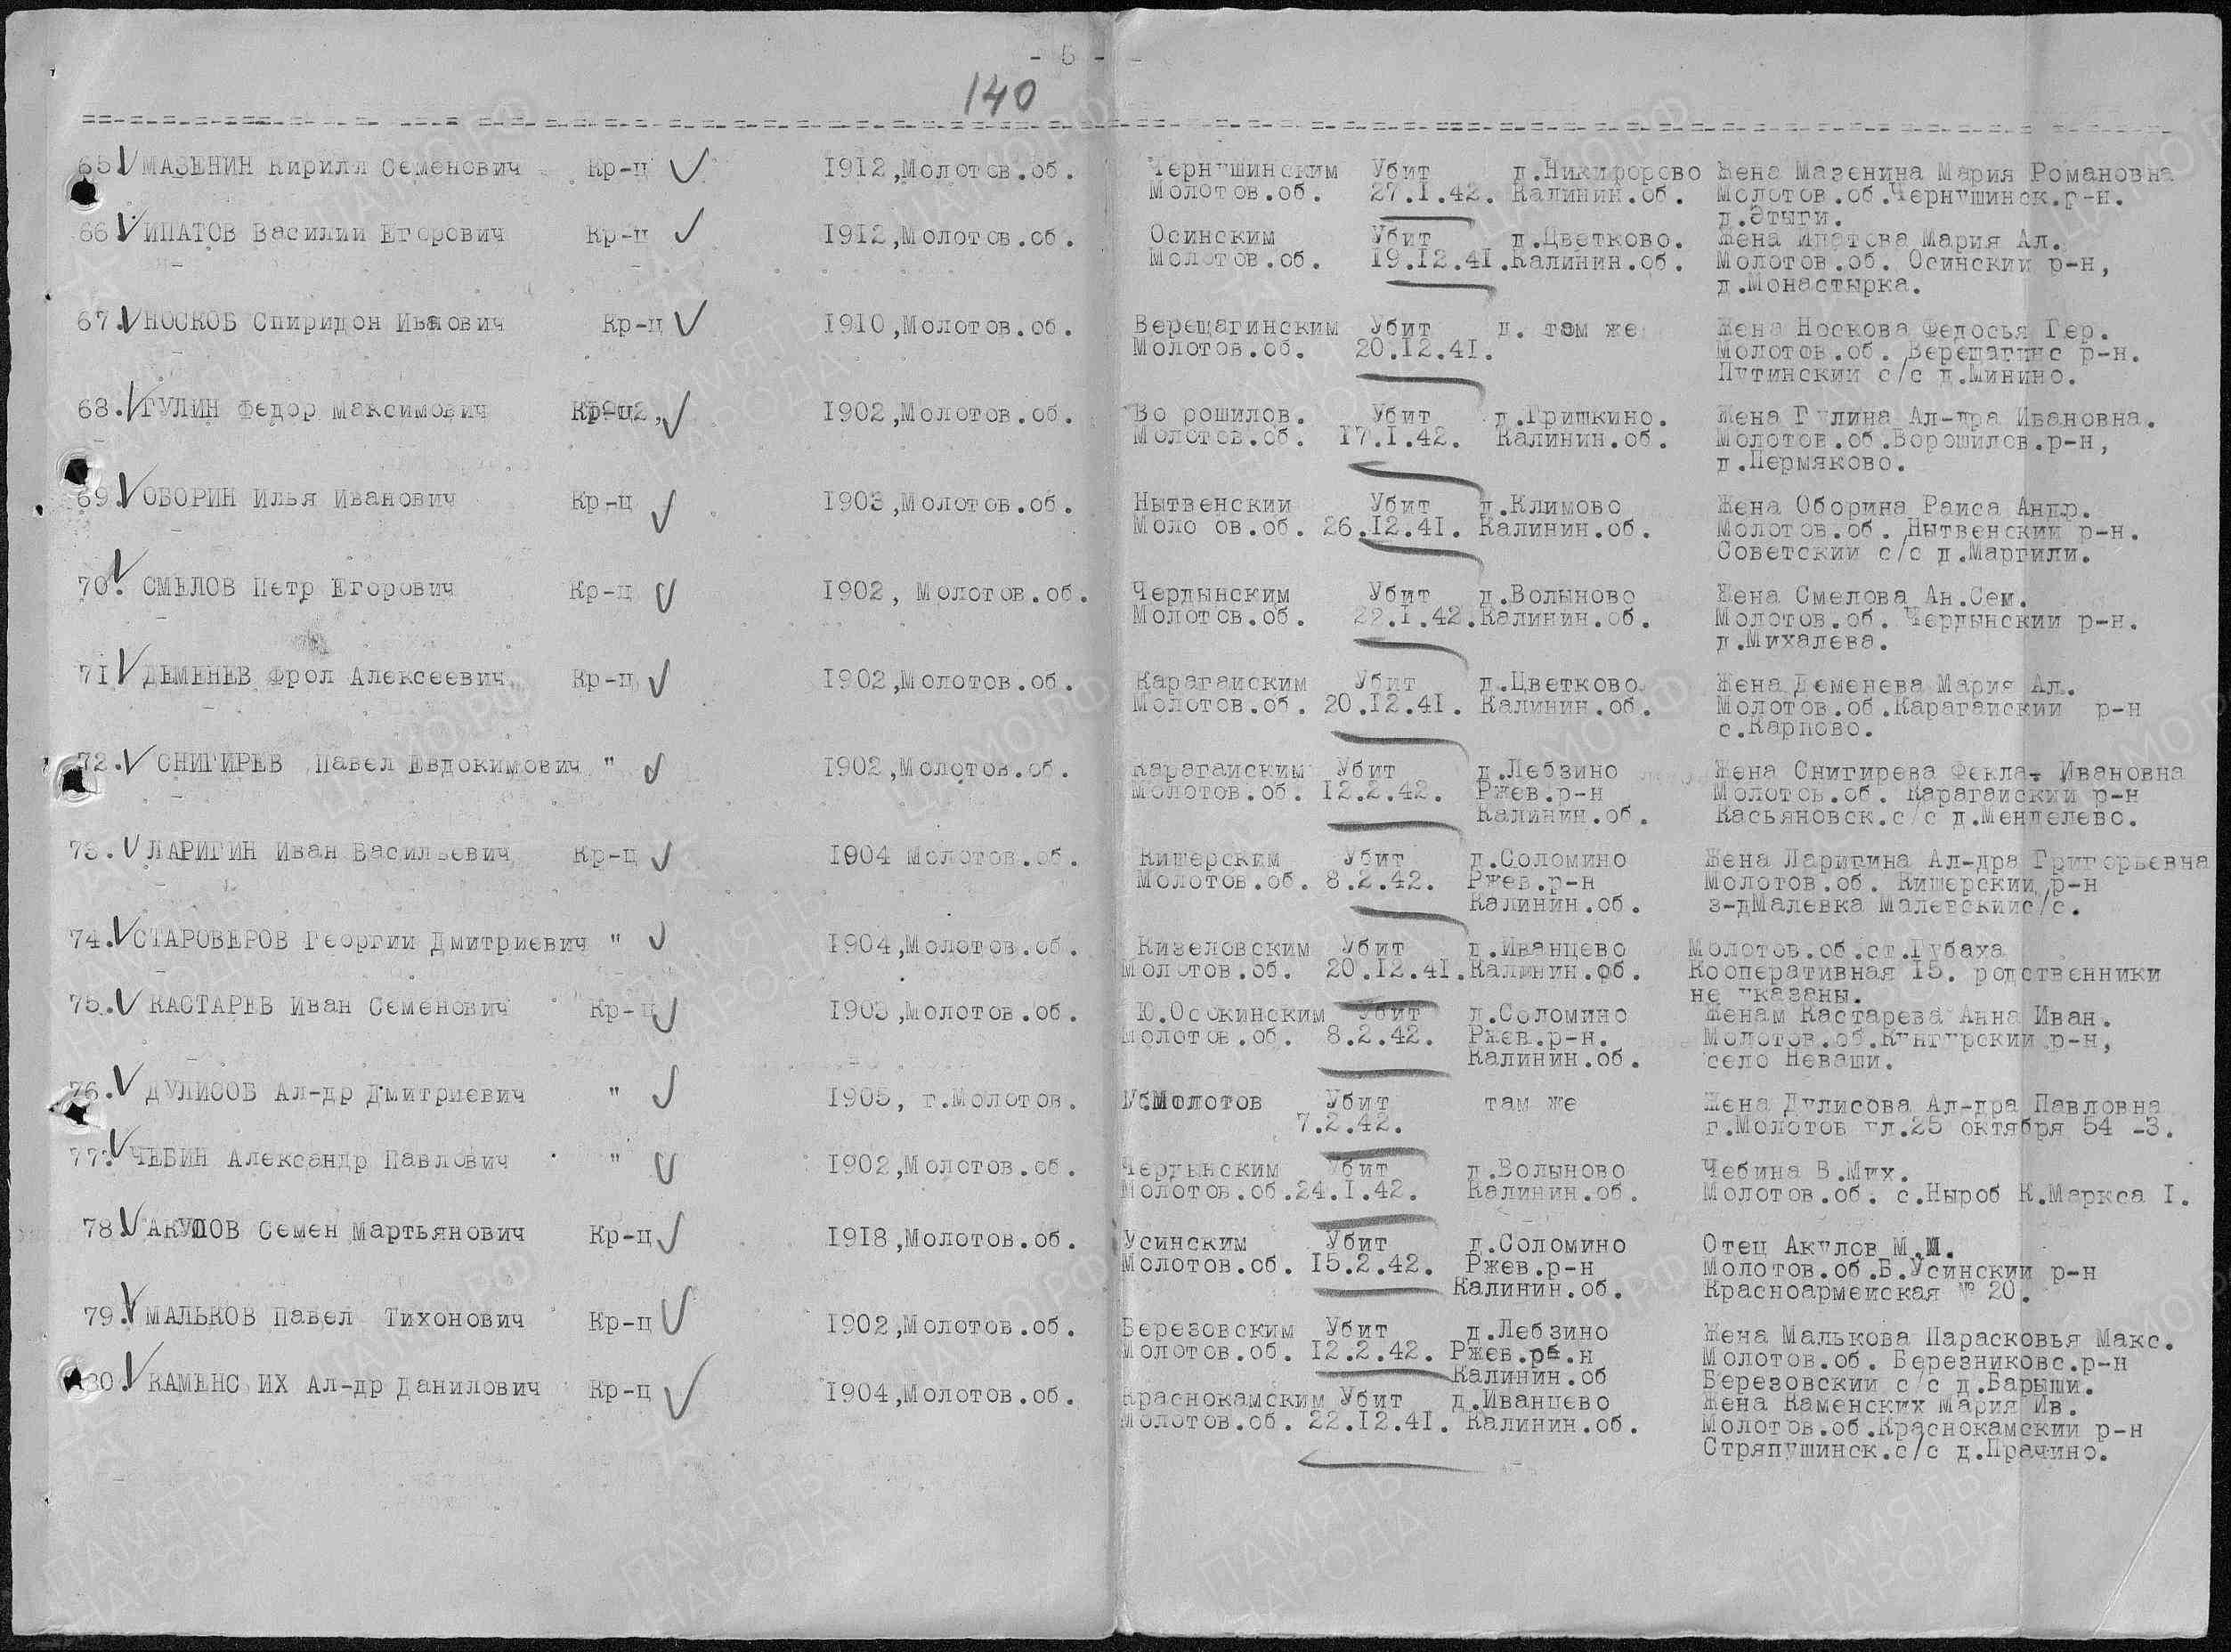 - 5 -
140
65. МАЗЕНИН Кирилл Семенович Кр-ц 1912,Молотов.об. Чернушинским Убит д.Никифорово Жена Мазенина Мария Романовна
Молотов.об. 27.I.42. Калинин.об. Молотов.об.Чернушинск.р-н.
д.Этыги.
66 ИПАТОВ Василий Егорович Кр-ц 1912,Молотов.об. Осинским Убит д.Цветково. Жена Ипатова Мария Ал.
Молотов.об. 19.12.41.Калинин.об. Молотов.об. Осинский р-н,
д.Монастырка.
67. НОСКОВ Спиридон Иванович Кр-ц 1910,Молотов.об. Верещагинским Убит д. там же Жена Носкова Федосья Гер.
Молотов.об. 20.12.41. Молотов.об. Верещагинс р-н.
Путинский с/с д.Минино.
68. ГУЛИН Федор Максимович Кр-ц 1902,Молотов.об. Во рошилов. Убит д.Гришкино. Жена Гулина Ал-дра Ивановна.
Молотов.об. 17.I.42. Калинин.об. Молотов.об.Ворошилов.р-н,
д.Пермяково.
69. ОБОРИН Илья Иванович Кр-ц 1903,Молотов.об. Нытвенский Убит д.Климово Жена Оборина Раиса Андр.
Моло ов.об. 26.12.41. Калинин.об. Молотов.об. Нытвенский р-н.
Советский с/с д.Маргили.
70. СМЕЛОВ Петр Егорович Кр-ц 1902, Молотов.об. Чердынским Убит д.Волыново Жена Смелова Ан.Сем.
Молотов.об. 22.I.42.Калинин.об. Молотов.об. Чердынский р-н.
д.Михалева.
71 ДЕМЕНЕВ Фрол Алексеевич Кр-ц 1902,Молотов.об. Карагайским Убит д.Цветково. Жена Деменева Мария Ал.
Молотов.об. 20.12.41. Калинин.об. Молотов.об.Карагайский р-н
с.Карпово.
72. СНИГИРЕВ Павел Евдокимович " 1902,Молотов.об. Карагайским Убит д.Лебзино Жена Снигирева Фекла Ивановна
Молотов.об. 12.2.42. Ржев.р-н Молотов.об. Карагайский р-н
Калинин.об. Касьяновск.с/с д.Менделево.
73. ЛАРИГИН Иван Васильевич Кр-ц 1904 Молотов.об. Кишерским Убит д.Соломино Жена Ларигина Ал-дра Григорьевна
Молотов.об. 8.2.42. Ржев.р-н Молотов.об. Кишерский р-н
Калинин.об. з-дМалевка Малевскийс/с.
74. СТАРОВЕРОВ Георгий Дмитриевич " 1904,Молотов.об. Кизеловским Убит д.Иванцево Молотов.об.ст.Губаха
Молотов.об. 20.12.41.Калинин.об. Кооперативная 15. родственники
не указаны.
75. КАСТАРЕВ Иван Семенович Кр-ц 1903,Молотов.об. Ю.Осокинским Убит д.Соломино Женам Кастарева Анна Иван.
Молотов.об. 8.2.42. Ржев.р-н. Молотов.об.Кунгурский р-н,
Калинин.об. село Неваши.
76. ДУЛИСОВ Ал-др Дмитриевич " 1905, г.Молотов. Молотов Убит там же Жена Дулисова Ал-дра Павловна
7.2.42. г.Молотов ул.25 октября 54 -3.
77. ЧЕБИН Александр Павлович " 1902,Молотов.об. Чердынским Убит д.Волыново Чебина В.Мих.
Молотов.об.24.I.42. Калинин.об. Молотов.об. с.Ныроб К.Маркса I.
78. АКУЛОВ Семен Мартьянович Кр-ц 1918,Молотов.об. Усинским Убит д.Соломино Отец Акулов М.М.
Молотов.об. 15.2.42. Ржев.р-н Молотов.об.Б.Усинский р-н
Калинин.об. Красноармейская № 20.
79. МАЛЬКОВ Павел Тихонович Кр-ц 1902,Молотов.об. Березовским Убит д.Лебзино Жена Малькова Парасковья Макс.
Молотов.об. 12.2.42. Ржев.р-н Молотов.об. Березниковс.р-н
Калинин.об Березовский с/с д.Барыши.
80. КАМЕНС ИХ Ал-др Данилович Кр-ц 1904,Молотов.об. Краснокамским Убит д.Иванцево Жена Каменских Мария Ив.
Молотов.об. 22.12.41. Калинин.об. Молотов.об.Краснокамский р-н
Стряпушинск.с/с д.Прачино.